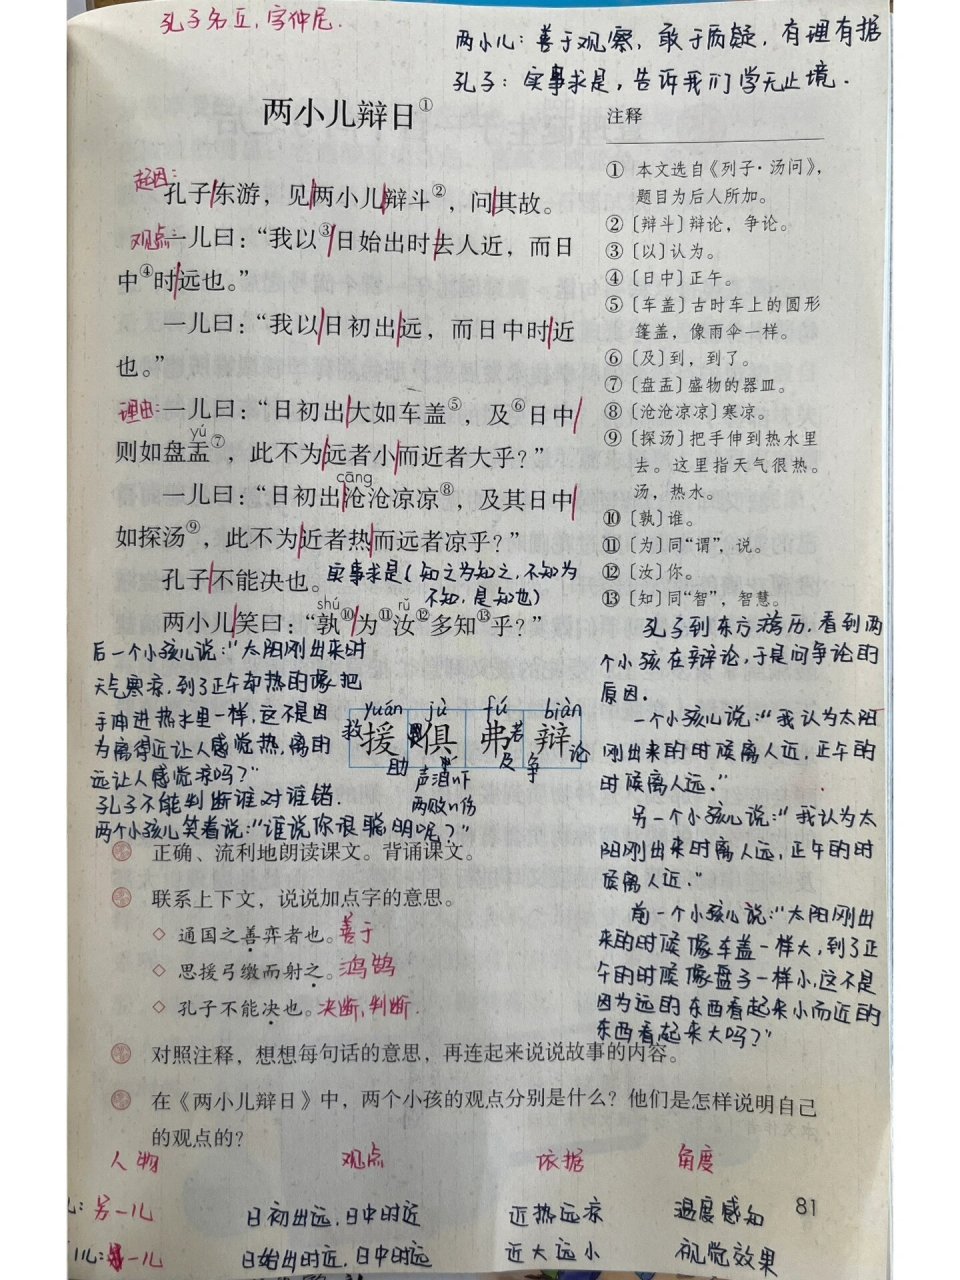 孔子名丘,字仲尼.
两小儿:善于观察,敢于质疑,有理有据
孔子:实事求是,告诉我们学无止境.
两小儿辩日①
起因:
孔子东游,见两小儿辩斗②,问其故。
观点:一儿曰:“我以③日始出时去人近,而日
中④时远也。”
一儿曰:“我以日初出远,而日中时近
也。”
理由:一儿曰:“日初出大如车盖⑤,及⑥日中
yú
则如盘盂⑦,此不为远者小而近者大乎?”
cāng
一儿曰:“日初出沧沧凉凉⑧,及其日中
如探汤⑨,此不为近者热而远者凉乎?”
孔子不能决也。实事求是(知之为知之,不知为
不知,是知也)
shú rǔ
两小儿笑曰:“孰⑩为⑪汝⑫多知⑬乎?”
注释
① 本文选自《列子·汤问》,
题目为后人所加。
②〔辩斗〕辩论,争论。
③〔以〕认为。
④〔日中〕正午。
⑤〔车盖〕古时车上的圆形
篷盖,像雨伞一样。
⑥〔及〕到,到了。
⑦〔盘盂〕盛物的器皿。
⑧〔沧沧凉凉〕寒凉。
⑨〔探汤〕把手伸到热水里
去。这里指天气很热。
汤,热水。
⑩〔孰〕谁。
⑪〔为〕同“谓”,说。
⑫〔汝〕你。
⑬〔知〕同“智”,智慧。
孔子到东方游历,看到两
个小孩在辩论,于是问争论的
原因.
一个小孩儿说:“我认为太阳
刚出来的时候离人近,正午的
时候离人远.”
另一个小孩儿说:“我认为太
阳刚出来时离人远,正午的时
候离人近.”
前一个小孩儿说:“太阳刚出
来的时候像车盖一样大,到了正
午的时候像盘子一样小,这不是
因为远的东西看起来小而近的
东西看起来大吗?”
后一个小孩儿说:“太阳刚出来时
天气寒凉,到了正午却热的像把
手伸进热水里一样,这不是因
为离得近让人感觉热,离的
远让人感觉凉吗?”
孔子不能判断谁对谁错.
两个小孩儿笑着说:“谁说你很聪明呢?”
yuán jù fú biàn
救援 俱 弗若 辩论
助 声泪n下 及 争
两败n伤
正确、流利地朗读课文。背诵课文。
联系上下文,说说加点字的意思。
◇ 通国之善弈者也。善于
◇ 思援弓缴而射之。鸿鹄
◇ 孔子不能决也。决断,判断.
对照注释,想想每句话的意思,再连起来说说故事的内容。
在《两小儿辩日》中,两个小孩的观点分别是什么?他们是怎样说明自己
的观点的?
人物 观点 依据 角度
81
另一儿 日初出远,日中时近 近热远凉 温度感知
一儿 日始出时近,日中时远 近大远小 视觉效果